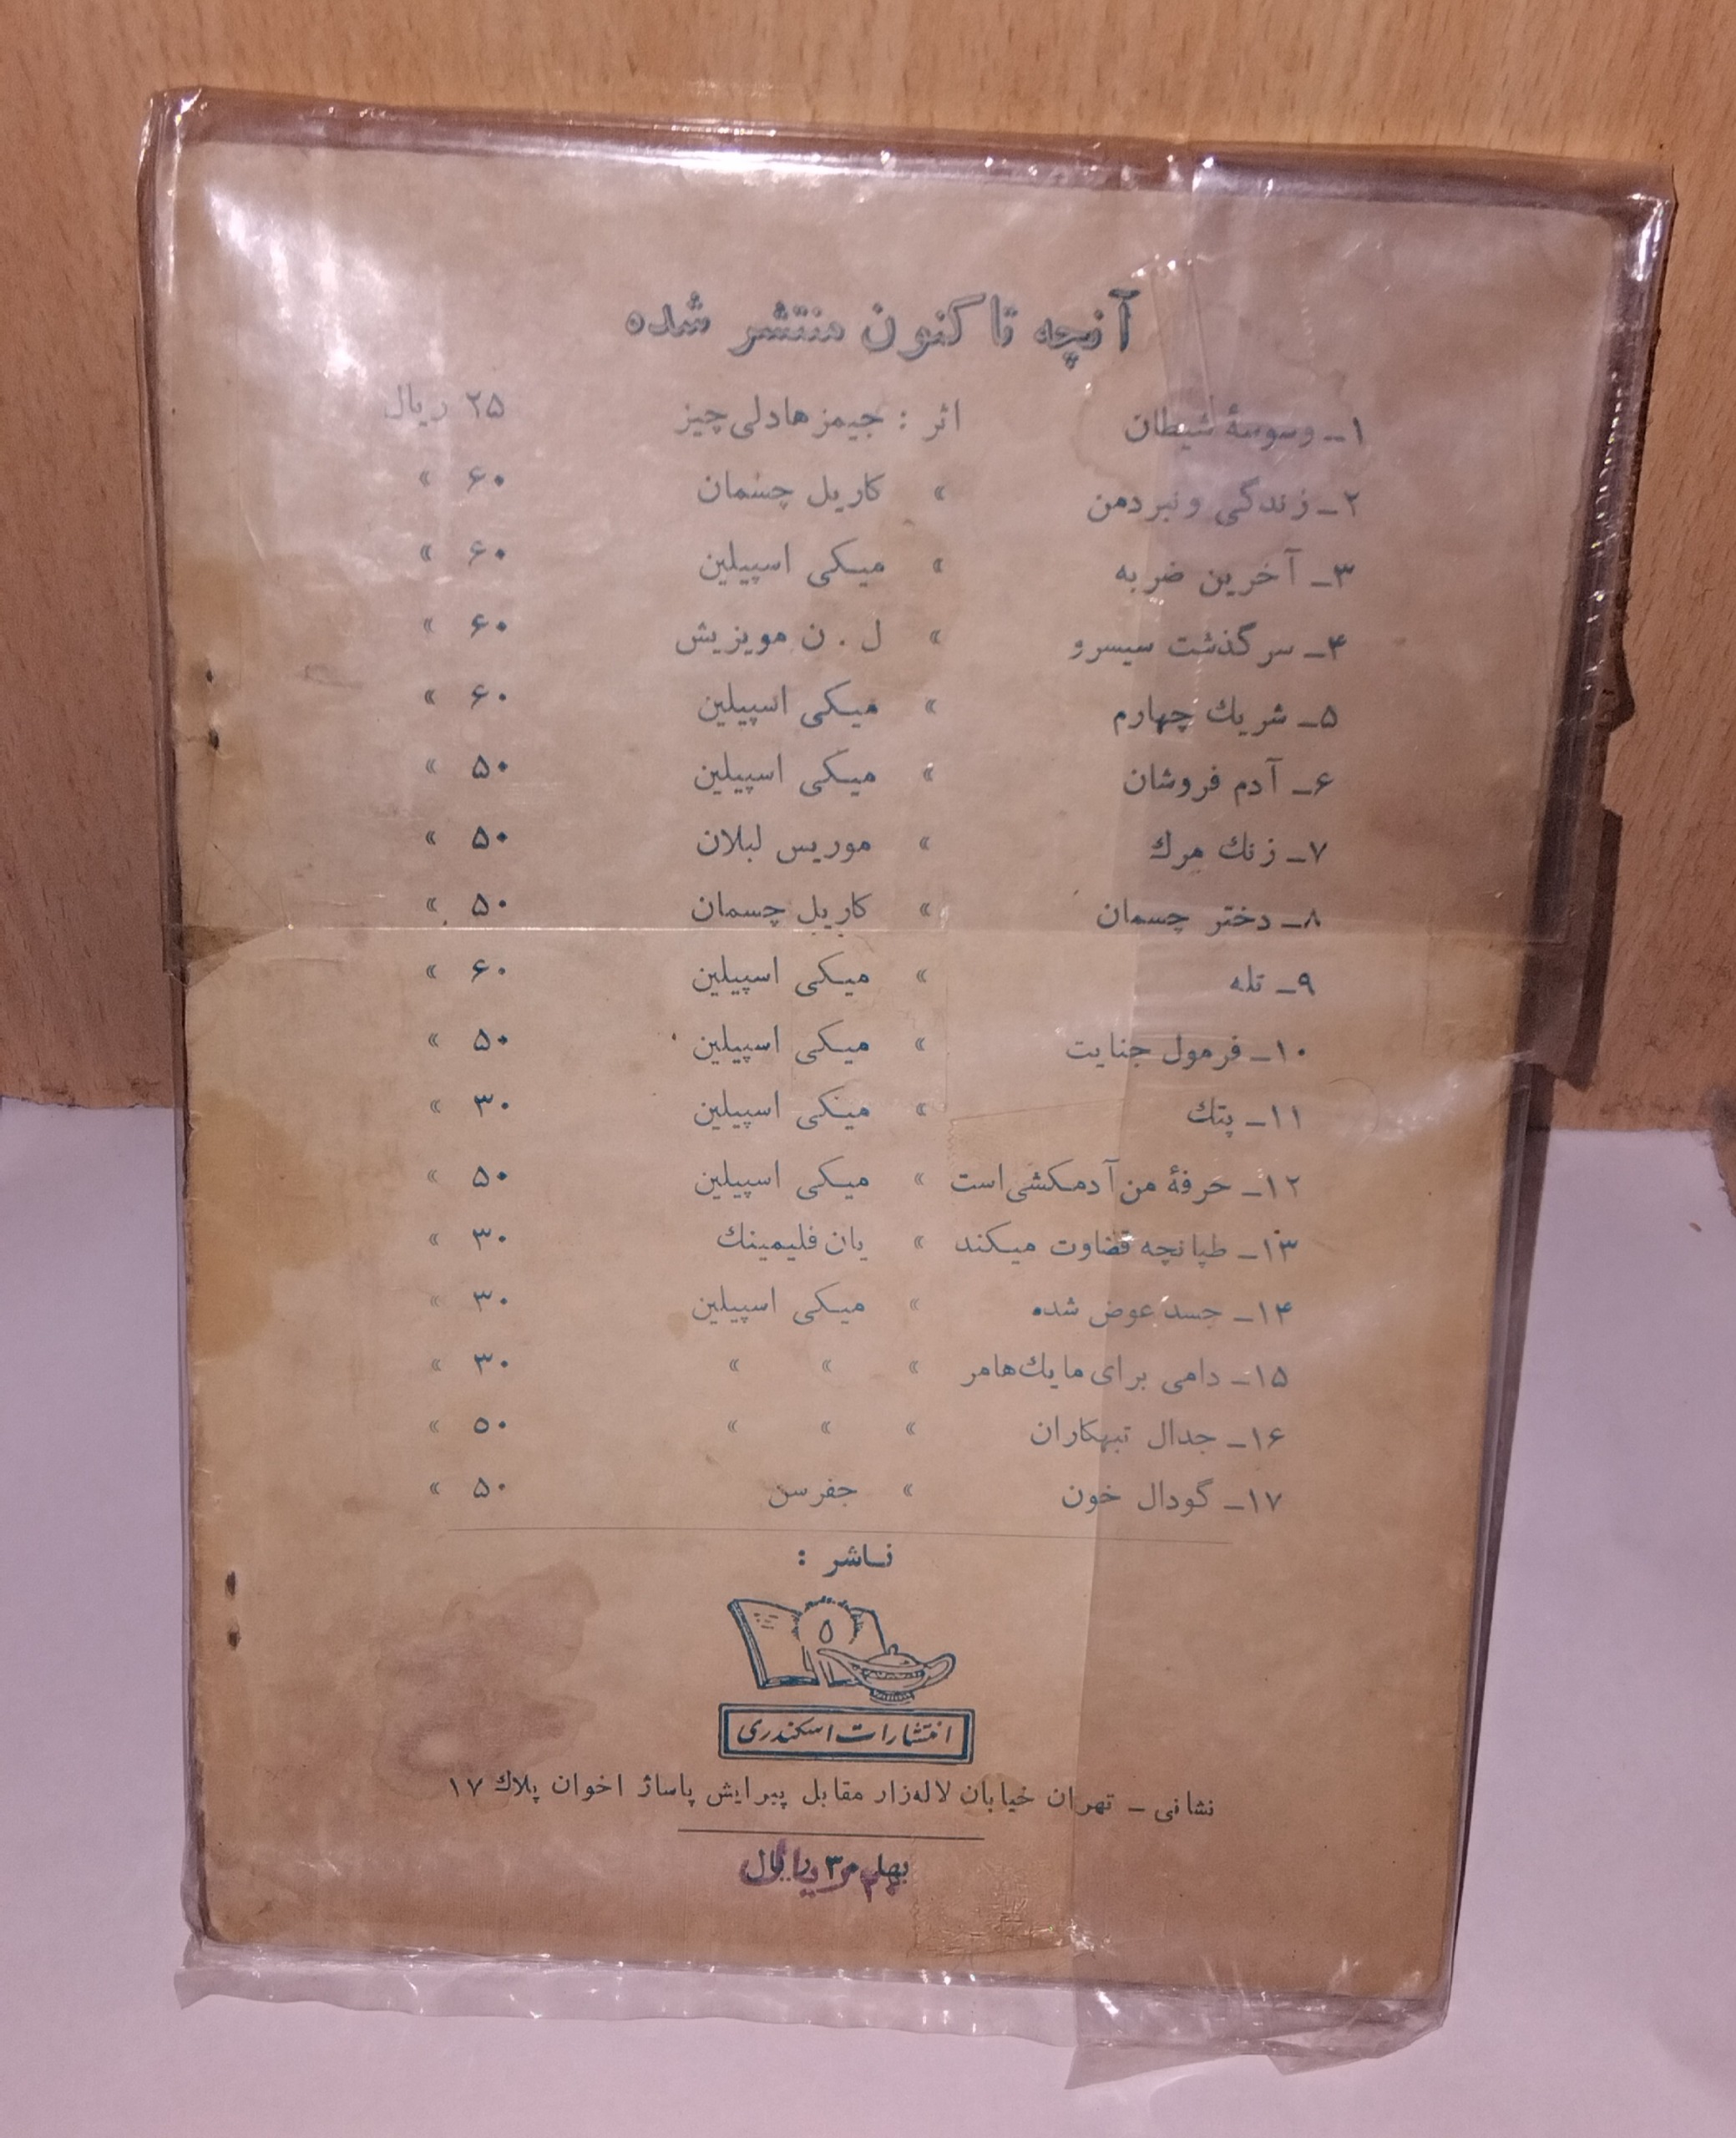 آنچه تا کنون منتشر شده
۱ــ وسوسهٔ شیطان اثر : جیمز هادلی چیز ۲۵ ریال
۲ــ زندگی و نبرد من » کاریل چسمان ۶۰ »
۳ــ آخرین ضربه » میکی اسپیلین ۶۰ »
۴ــ سرگذشت سیسرو » ل . ن مویزیش ۶۰ »
۵ــ شریك چهارم » میکی اسپیلین ۶۰ »
۶ــ آدم فروشان » میکی اسپیلین ۵۰ »
۷ــ زنك مرك » موریس لبلان ۵۰ »
۸ــ دختر چسمان » کاریل چسمان ۵۰ »
۹ــ تله » میکی اسپیلین ۶۰ »
۱۰ــ فرمول جنایت » میکی اسپیلین ۵۰ »
۱۱ــ پتك » میکی اسپیلین ۳۰ »
۱۲ــ حرفهٔ من آدمکشی است » میکی اسپیلین ۵۰ »
۱۳ــ طپانچه قضاوت میکند » یان فلیمینك ۳۰ »
۱۴ــ جسد عوض شده » میکی اسپیلین ۳۰ »
۱۵ــ دامی برای مایك هامر » » » ۳۰ »
۱۶ــ جدال تبهکاران » » » ۵۰ »
۱۷ــ گودال خون » جفرسن ۵۰ »
ناشر :
انتشارات اسکندری
نشانی ــ تهران خیابان لاله‌زار مقابل پیرایش پاساژ اخوان پلاك ۱۷
بها ۳۰ ریال